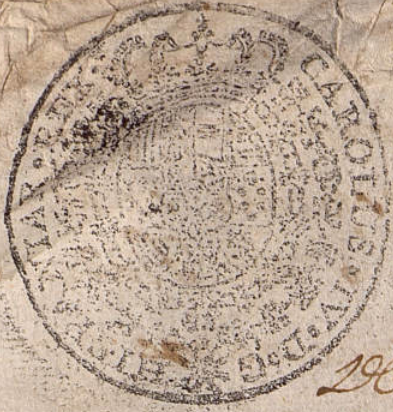 CAROLUS · IV · D · G · HISPANIAR · REX ·